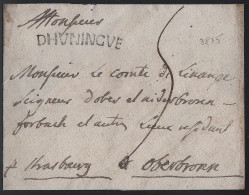 A Monsieur
DHUNINGUE
3875
Monsieur le comte de Linange
Seigneur d'ober et niderbronn
forbach et autres lieux residant
p strasbourg à oberbronn